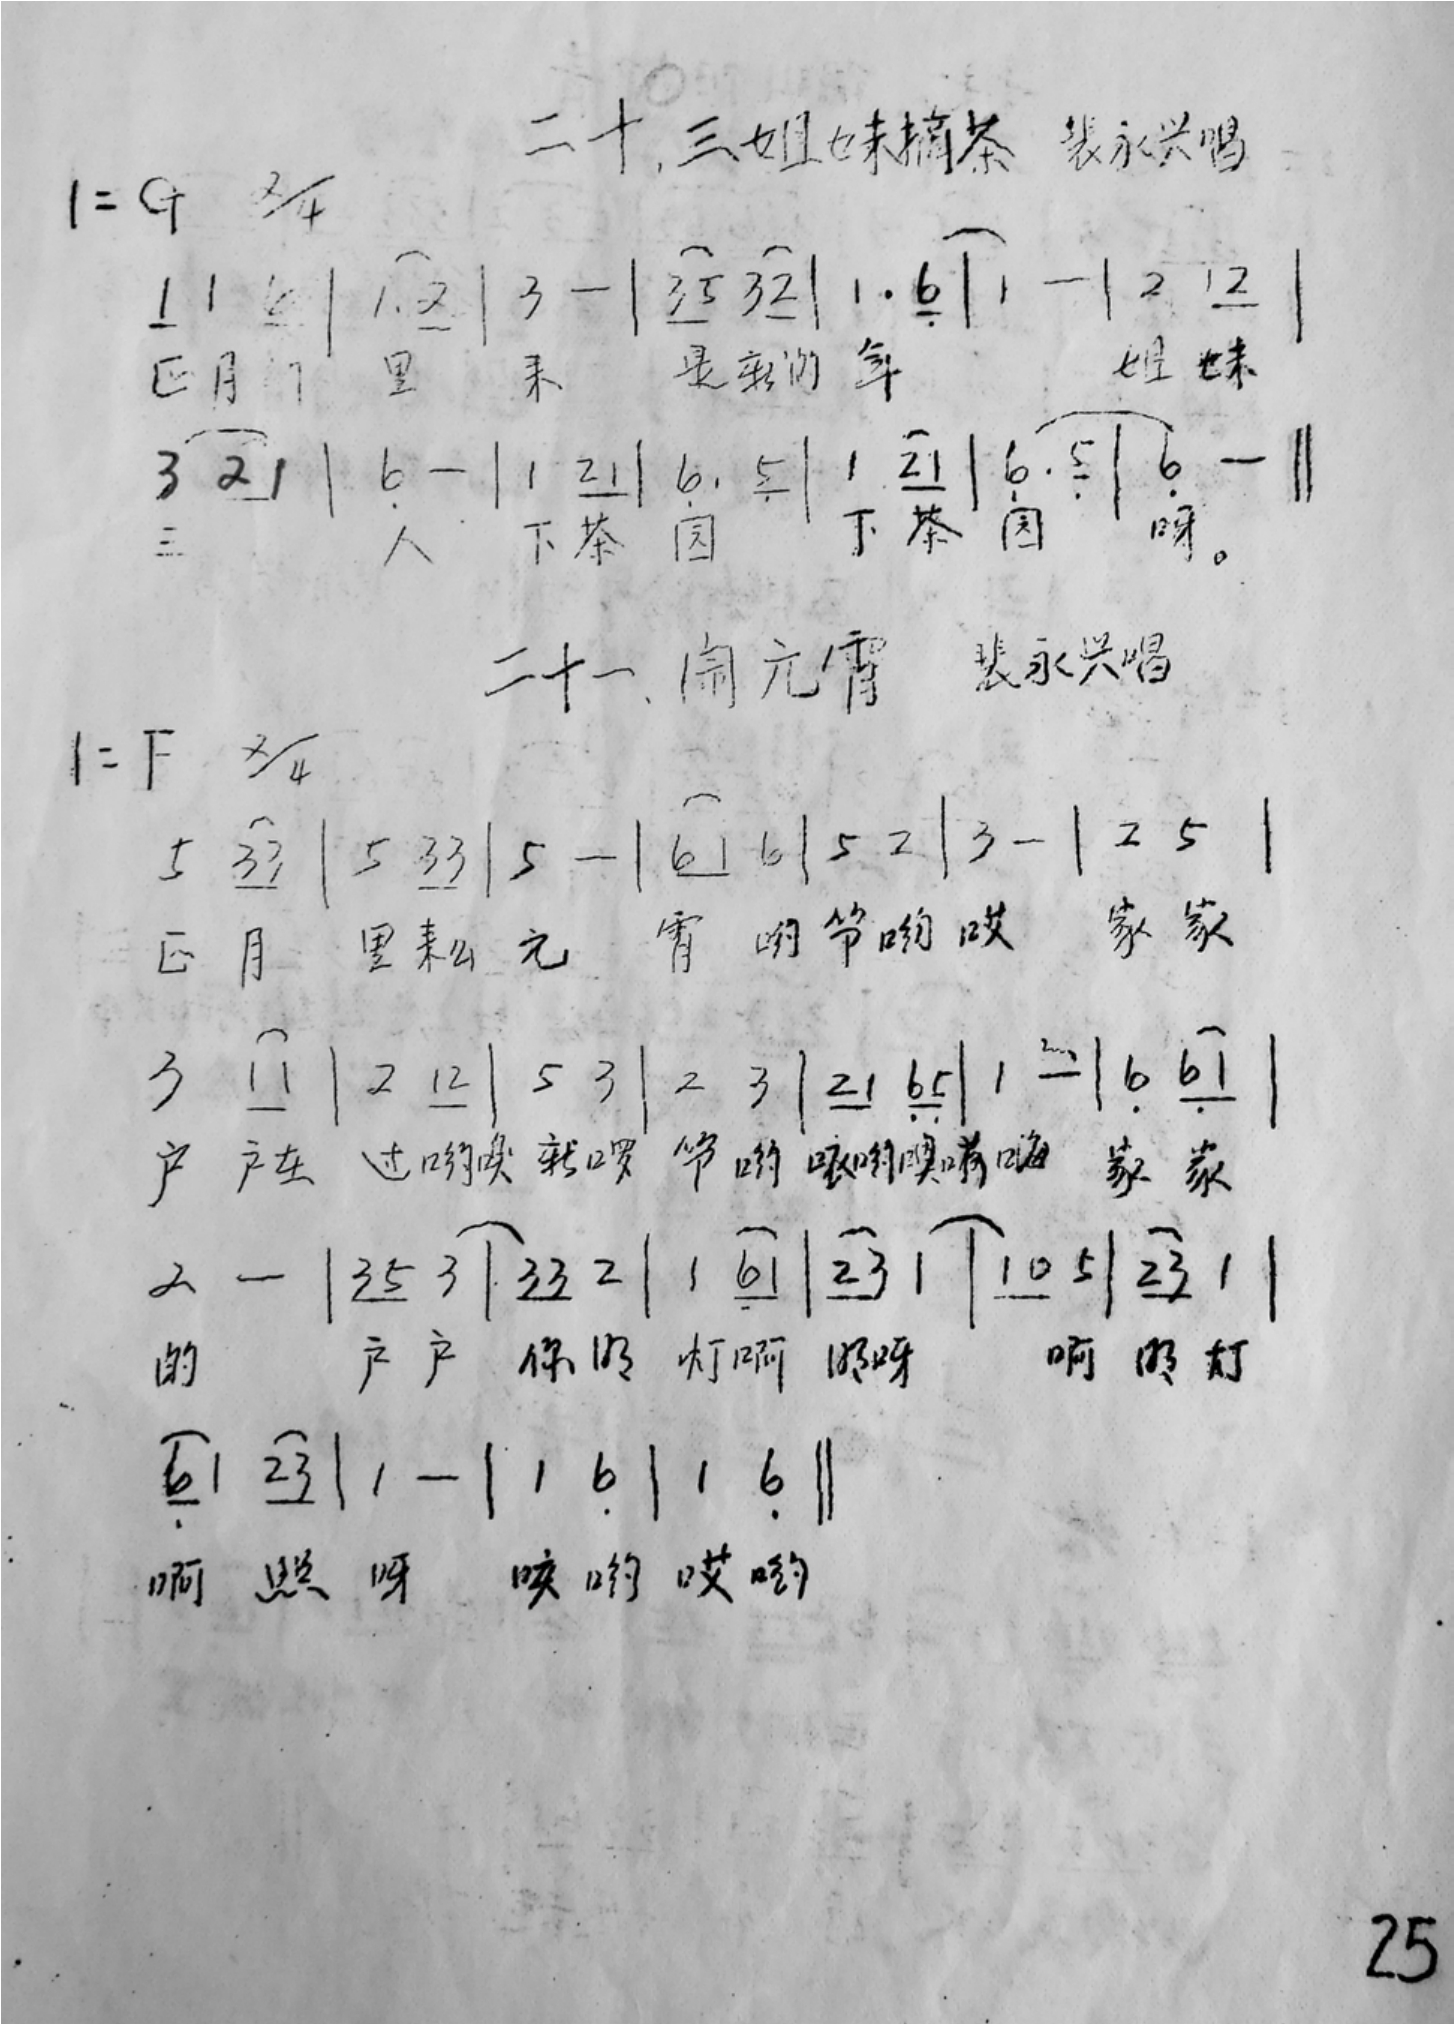 二十、三姐妹摘茶 裴永兴唱
1=G 2/4
1 1 6 | 1.2 | 3 — | 35 32 | 1. 6 | 1 — | 2 12 |
正月 里 来 是新的年 姐妹
3 21 | 6 — | 1 21 | 6. 5 | 1 21 | 6. 5 | 6 — ‖
三 人 下茶园 下茶园 呀。
二十一、闹元宵 裴永兴唱
1=F 2/4
5 33 | 5 33 | 5 — | 61 6 | 5 2 | 3 — | 2 5 |
正月 里来 元 宵 哟 节哟 哎 家家
3 11 | 2 12 | 5 3 | 2 3 | 21 65 | 1 — | 6 61 |
户 户在 过哟 新啰 节哟 哟噢嗬嗨 家家
2 — | 35 3 | 33 2 | 1 61 | 23 1 | 10 5 | 23 1 |
的 户户 你明 灯啊 明呀 啊 明灯
61 23 | 1 — | 1 6 | 1 6 ‖
啊 照 呀 咳哟 哎哟
25